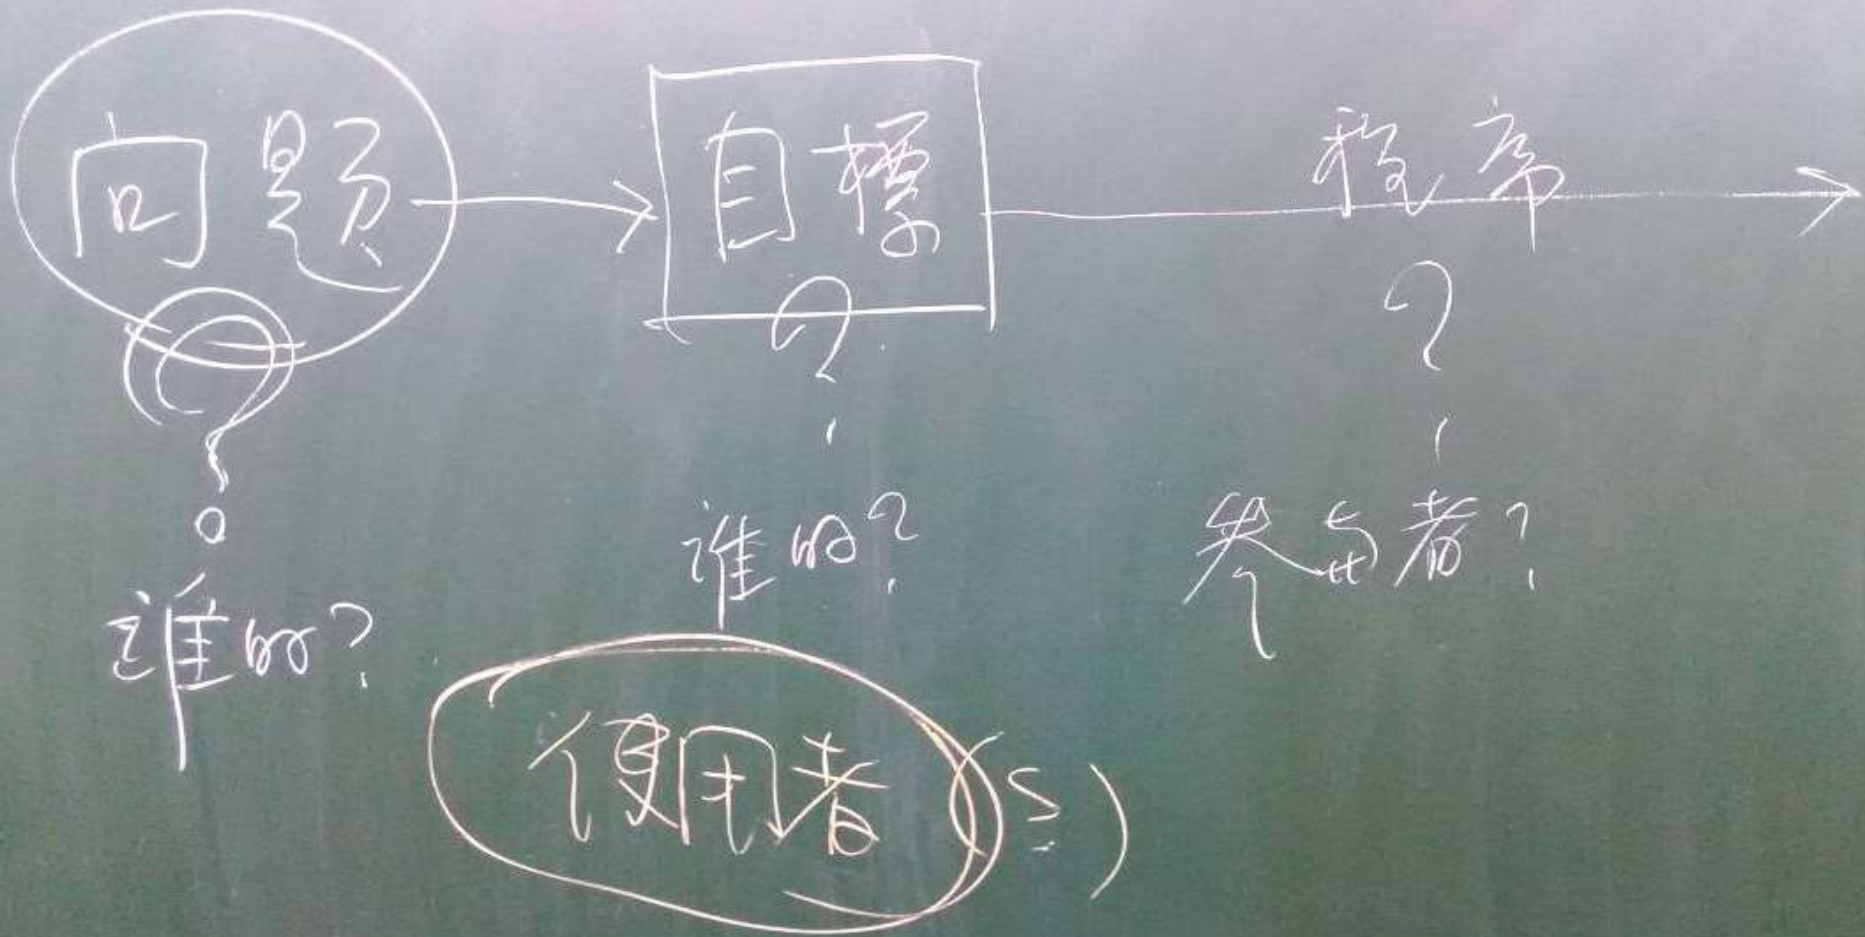 问题 → 目標 程序 →
? ? ?
谁的? 谁的? 参与者?
使用者(s)